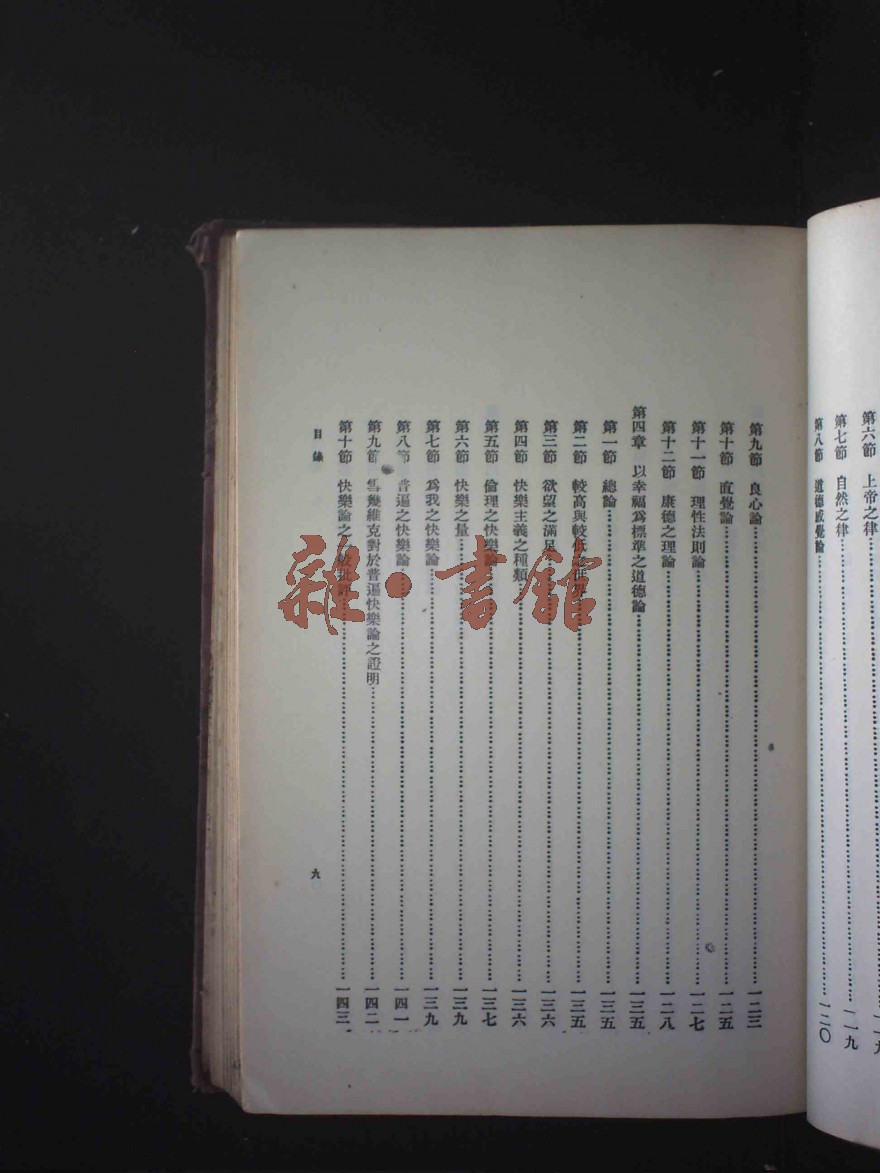 第六節　上帝之律……一一九
第七節　自然之律……一一九
第八節　道德感覺論……一二〇
第九節　良心論……一二三
第十節　直覺論……一二五
第十一節　理性法則論……一二七
第十二節　康德之理論……一二八
第四章　以幸福爲標準之道德論……一三五
第一節　總論……一三五
第二節　較高與較低之世界……一三五
第三節　欲望之滿足……一三六
第四節　快樂主義之種類……一三六
第五節　倫理之快樂論……一三七
第六節　快樂之量……一三九
第七節　爲我之快樂論……一三九
第八節　普遍之快樂論……一四一
第九節　雪幾維克對於普遍快樂論之證明……一四二
第十節　快樂論之　較批評……一四三
目錄
九
雜·書館